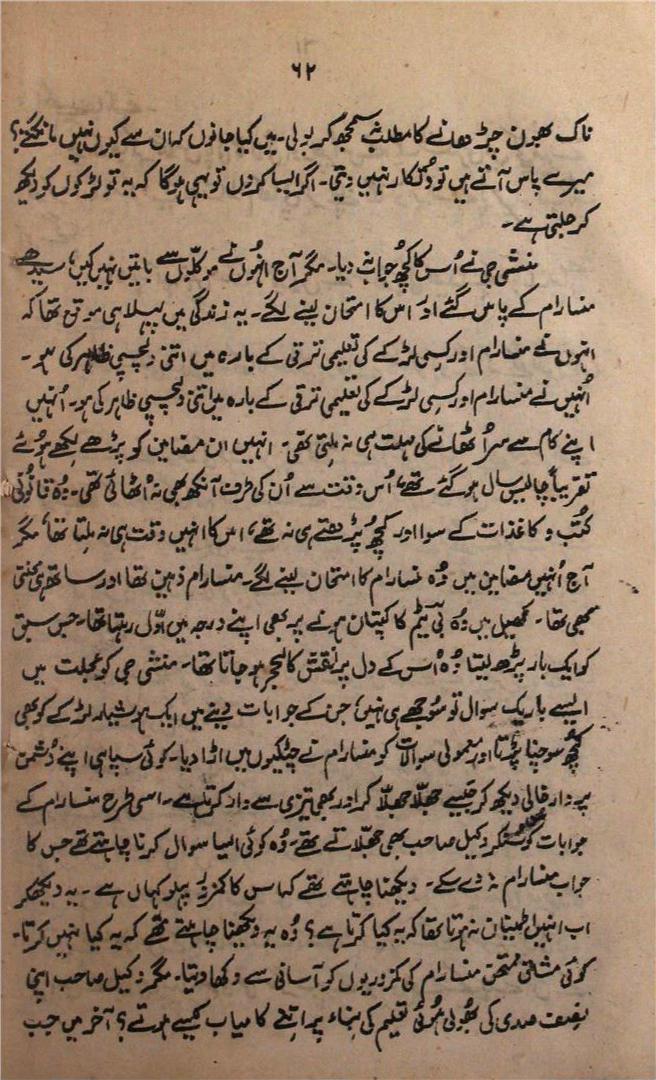 ۶۲
ناک بھون چڑھانے کا مطلب سمجھ کر بولی۔ میں کیا جانوں کہ ان سے کیوں نہیں مانگتے؟
میرے پاس آتے ہیں تو دُتکار نہیں دیتی۔ اگر ایسا کروں تو یہی ہوگا کہ یہ تو لڑکوں کو دیکھ
کر جلتی ہے۔
منشی جی نے اُس کا کچھ جواب نہ دیا۔ مگر آج انہوں نے موکلّوں سے باتیں نہیں کیں، سیدھے
منسارام کے پاس گئے اور اس کا امتحان لینے لگے۔ یہ زندگی میں پہلا ہی موقع تھا کہ
انہوں نے منسارام اور کسی لڑکے کی تعلیمی ترقی کے بارہ میں اتنی دلچسپی ظاہر کی ہو۔
اُنہیں نے منسارام اور کسی لڑکے کی تعلیمی ترقی کے بارہ میں اتنی دلچسپی ظاہر کی ہو۔ اُنہیں
اپنے کام سے سر اُٹھانے کی مہلت ہی نہ ملتی تھی۔ انہیں ان مضامین کو پڑھے لکھے ہوئے
تقریباً چالیس سال ہو گئے تھے، اُس وقت سے اُن کی طرف آنکھ بھی نہ اُٹھائی تھی۔ وُہ قانونی
کُتب و کاغذات کے سوا اور کچھ پڑھتے ہی نہ تھے، اس کا انہیں وقت ہی نہ ملتا تھا، مگر
آج اُنہیں مضامین میں وُہ منسارام کا امتحان لینے لگے۔ منسارام ذہین تھا اور ساتھ ہی محنتی
بھی تھا۔ کھیل میں وُہ ٹیم کا کپتان ہونے پر بھی اپنے درجہ میں اوّل رہتا تھا۔ جس سبق
کو ایک بار پڑھ لیتا وُہ اُس کے دل پر نقش کالحجر ہو جاتا تھا۔ منشی جی کو عجلت میں
ایسے باریک سوال تو سُوجھے ہی نہیں، جن کے جوابات دینے میں ایک ہوشیار لڑکے کو بھی
کچھ سوچنا پڑتا اور معمولی سوالات کو منسارام نے چٹکیوں میں اڑا دیا۔ کوئی سپاہی اپنے دُشمن
پر وار خالی دیکھ کر جیسے جھلّا جھلّا کر اور بھی تیزی سے وار کرتا ہے۔ اسی طرح منسارام کے
جوابات کو سنکر وکیل صاحب بھی جھلّاتے تھے۔ وُہ کوئی ایسا سوال کرنا چاہتے تھے جس کا
جواب منسارام نہ دے سکے۔ دیکھنا چاہتے تھے کہ اس کا کمزور پہلو کہاں ہے۔ یہ دیکھکر
اب انہیں اطمینان نہ ہوتا تھا کہ یہ کیا کرتا ہے؟ وُہ یہ دیکھنا چاہتے تھے کہ یہ کیا نہیں کرتا۔
کوئی مشاق ممتحن منسارام کی کمزوریوں کو آسانی سے دکھا دیتا۔ مگر وکیل صاحب اپنی
نصف صدی کی بھولی ہوئی تعلیم کی بناء پر اتنے کامیاب کیسے ہوتے؟ آخر میں جب